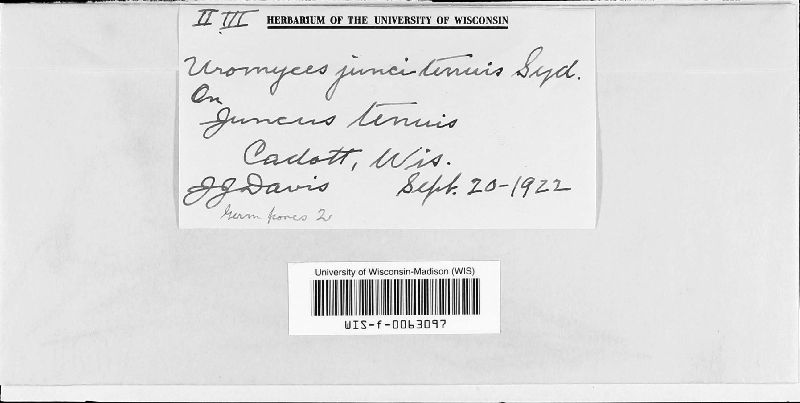 II III HERBARIUM OF THE UNIVERSITY OF WISCONSIN
Uromyces junci-tenuis Syd.
On
Juncus tenuis
Cadott, Wis.
JJ Davis Sept. 20-1922
Germ pores 2
University of Wisconsin-Madison (WIS)
WIS-f-0063097